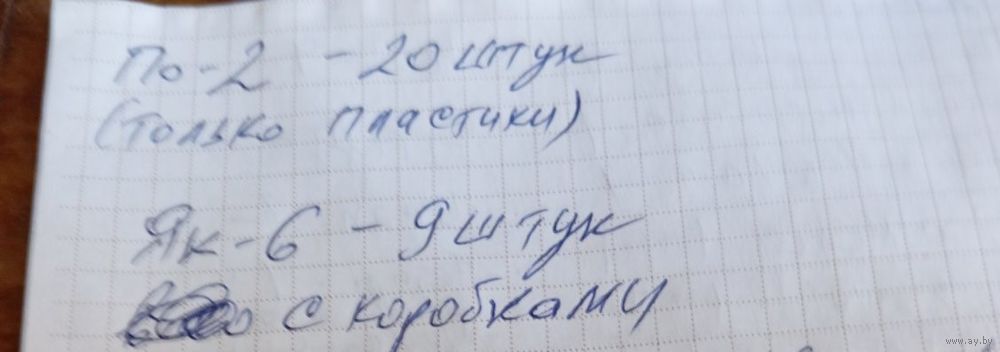 По-2 - 20 штук
(только пластики)
Як-6 - 9 штук
с коробками
www.ay.by